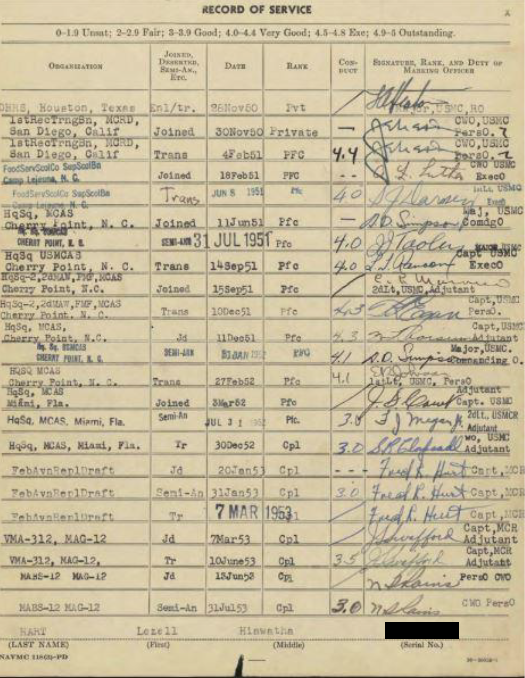 RECORD OF SERVICE
0-1.9 Unsat; 2-2.9 Fair; 3-3.9 Good; 4.0-4.4 Very Good; 4.5-4.8 Exc; 4.9-5 Outstanding.
ORGANIZATION JOINED, DESERTED, SEMI-AN., ETC. DATE RANK CONDUCT SIGNATURE, RANK, AND DUTY OF MARKING OFFICER
Houston, Texas Enl/tr. 28Nov50 Pvt USMC,RO
1stRecTrngBn, MCRD, CWO,USMC
San Diego, Calif Joined 30Nov50 Private — Johnson PersO.
1stRecTrngBn, MCRD, CWO,USMC
San Diego, Calif Trans 4Feb51 PFC 4.4 Johnson PersO.
FoodServScolCo SupScolBn CWO USMC
Camp Lejeune, N. C. Joined 18Feb51 PFC -- ExecO
FoodServScolCo SupScolBn 1stLt. USMC
Camp Lejeune, N. C. Trans JUN 8 1951 Pfc 4.0
HqSq, MCAS Maj, USMC
Cherry Point, N. C. Joined 11Jun51 Pfc — D.O. Simpson ComdgO
CHERRY POINT, N. C. SEMI-ANN 31 JUL 1951 Pfc 4.0
HqSq USMCAS Capt USMC
Cherry Point, N. C. Trans 14Sep51 Pfc 4.0 ExecO
HqSq-2,2dMAW,FMF,MCAS
Cherry Point, N.C. Joined 15Sep51 Pfc 2dLt,USMC,Adjutant
HqSq-2,2dMAW,FMF,MCAS Capt,USMC
Cherry Point, N.C. Trans 10Dec51 Pfc 4.3 PersO.
HqSq, MCAS, Capt,USMC
Cherry Point, N.C. Jd 11Dec51 Pfc 4.3 Adjutant
Hq. Sq. USMCAS Major,USMC.
CHERRY POINT, N. C. SEMI-AN 31JAN 1952 4.1 D.O. Simpson Commanding O.
HQSQ MCAS
Cherry Point, N. C. Trans 27Feb52 Pfc 4.1 1stLt, USMC, PersO
HqSq, MCAS Adjutant
Miami, Fla. Joined 3Mar52 Pfc Capt. USMC
HqSq, MCAS, Miami, Fla. Semi-An JUL 31 1952 Pfc. 3.8 2dLt., USMCR Adjutant
HqSq, MCAS, Miami, Fla. Tr 30Dec52 Cpl 3.0 WO, USMC Adjutant
FebAvnReplDraft Jd 20Jan53 Cpl --- Fred R. Hurt Capt,MCR
FebAvnReplDraft Semi-An 31Jan53 Cpl 3.0 Fred R. Hurt Capt,MCR
FebAvnReplDraft Tr 7 MAR 1953 Cpl Fred R. Hurt Capt,MCR
VMA-312, MAG-12 Jd 7Mar53 Cpl Capt,MCR Adjutant
VMA-312, MAG-12, Tr 10June53 Cpl 3.5 Capt,MCR Adjutant
MABS-12 MAG-12 Jd 13Jun53 Cpl PersO CWO
MABS-12 MAG-12 Semi-An 31Jul53 Cpl 3.0 CWO PersO
HART Lozell Hiawatha
(LAST NAME) (First) (Middle) (Serial No.)
NAVMC 118(3)-PD